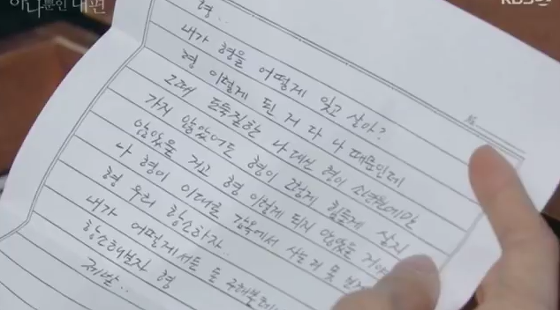 하나뿐인 내편
KBS
형..
내가 형을 어떻게 잊고 살아?
형 이렇게 된 거 다 나 때문인데
그때 도둑질한 나 대신 형이 소년원에만
가지 않았어도 형이 그렇게 힘들게 살지
않았을 거고 형 이렇게 되지 않았을 거야
나 형이 이대로 감옥에서 사는 거 못
형 우리 항소하자.
내가 어떻게서든 돈
항소해보자 형
제발..